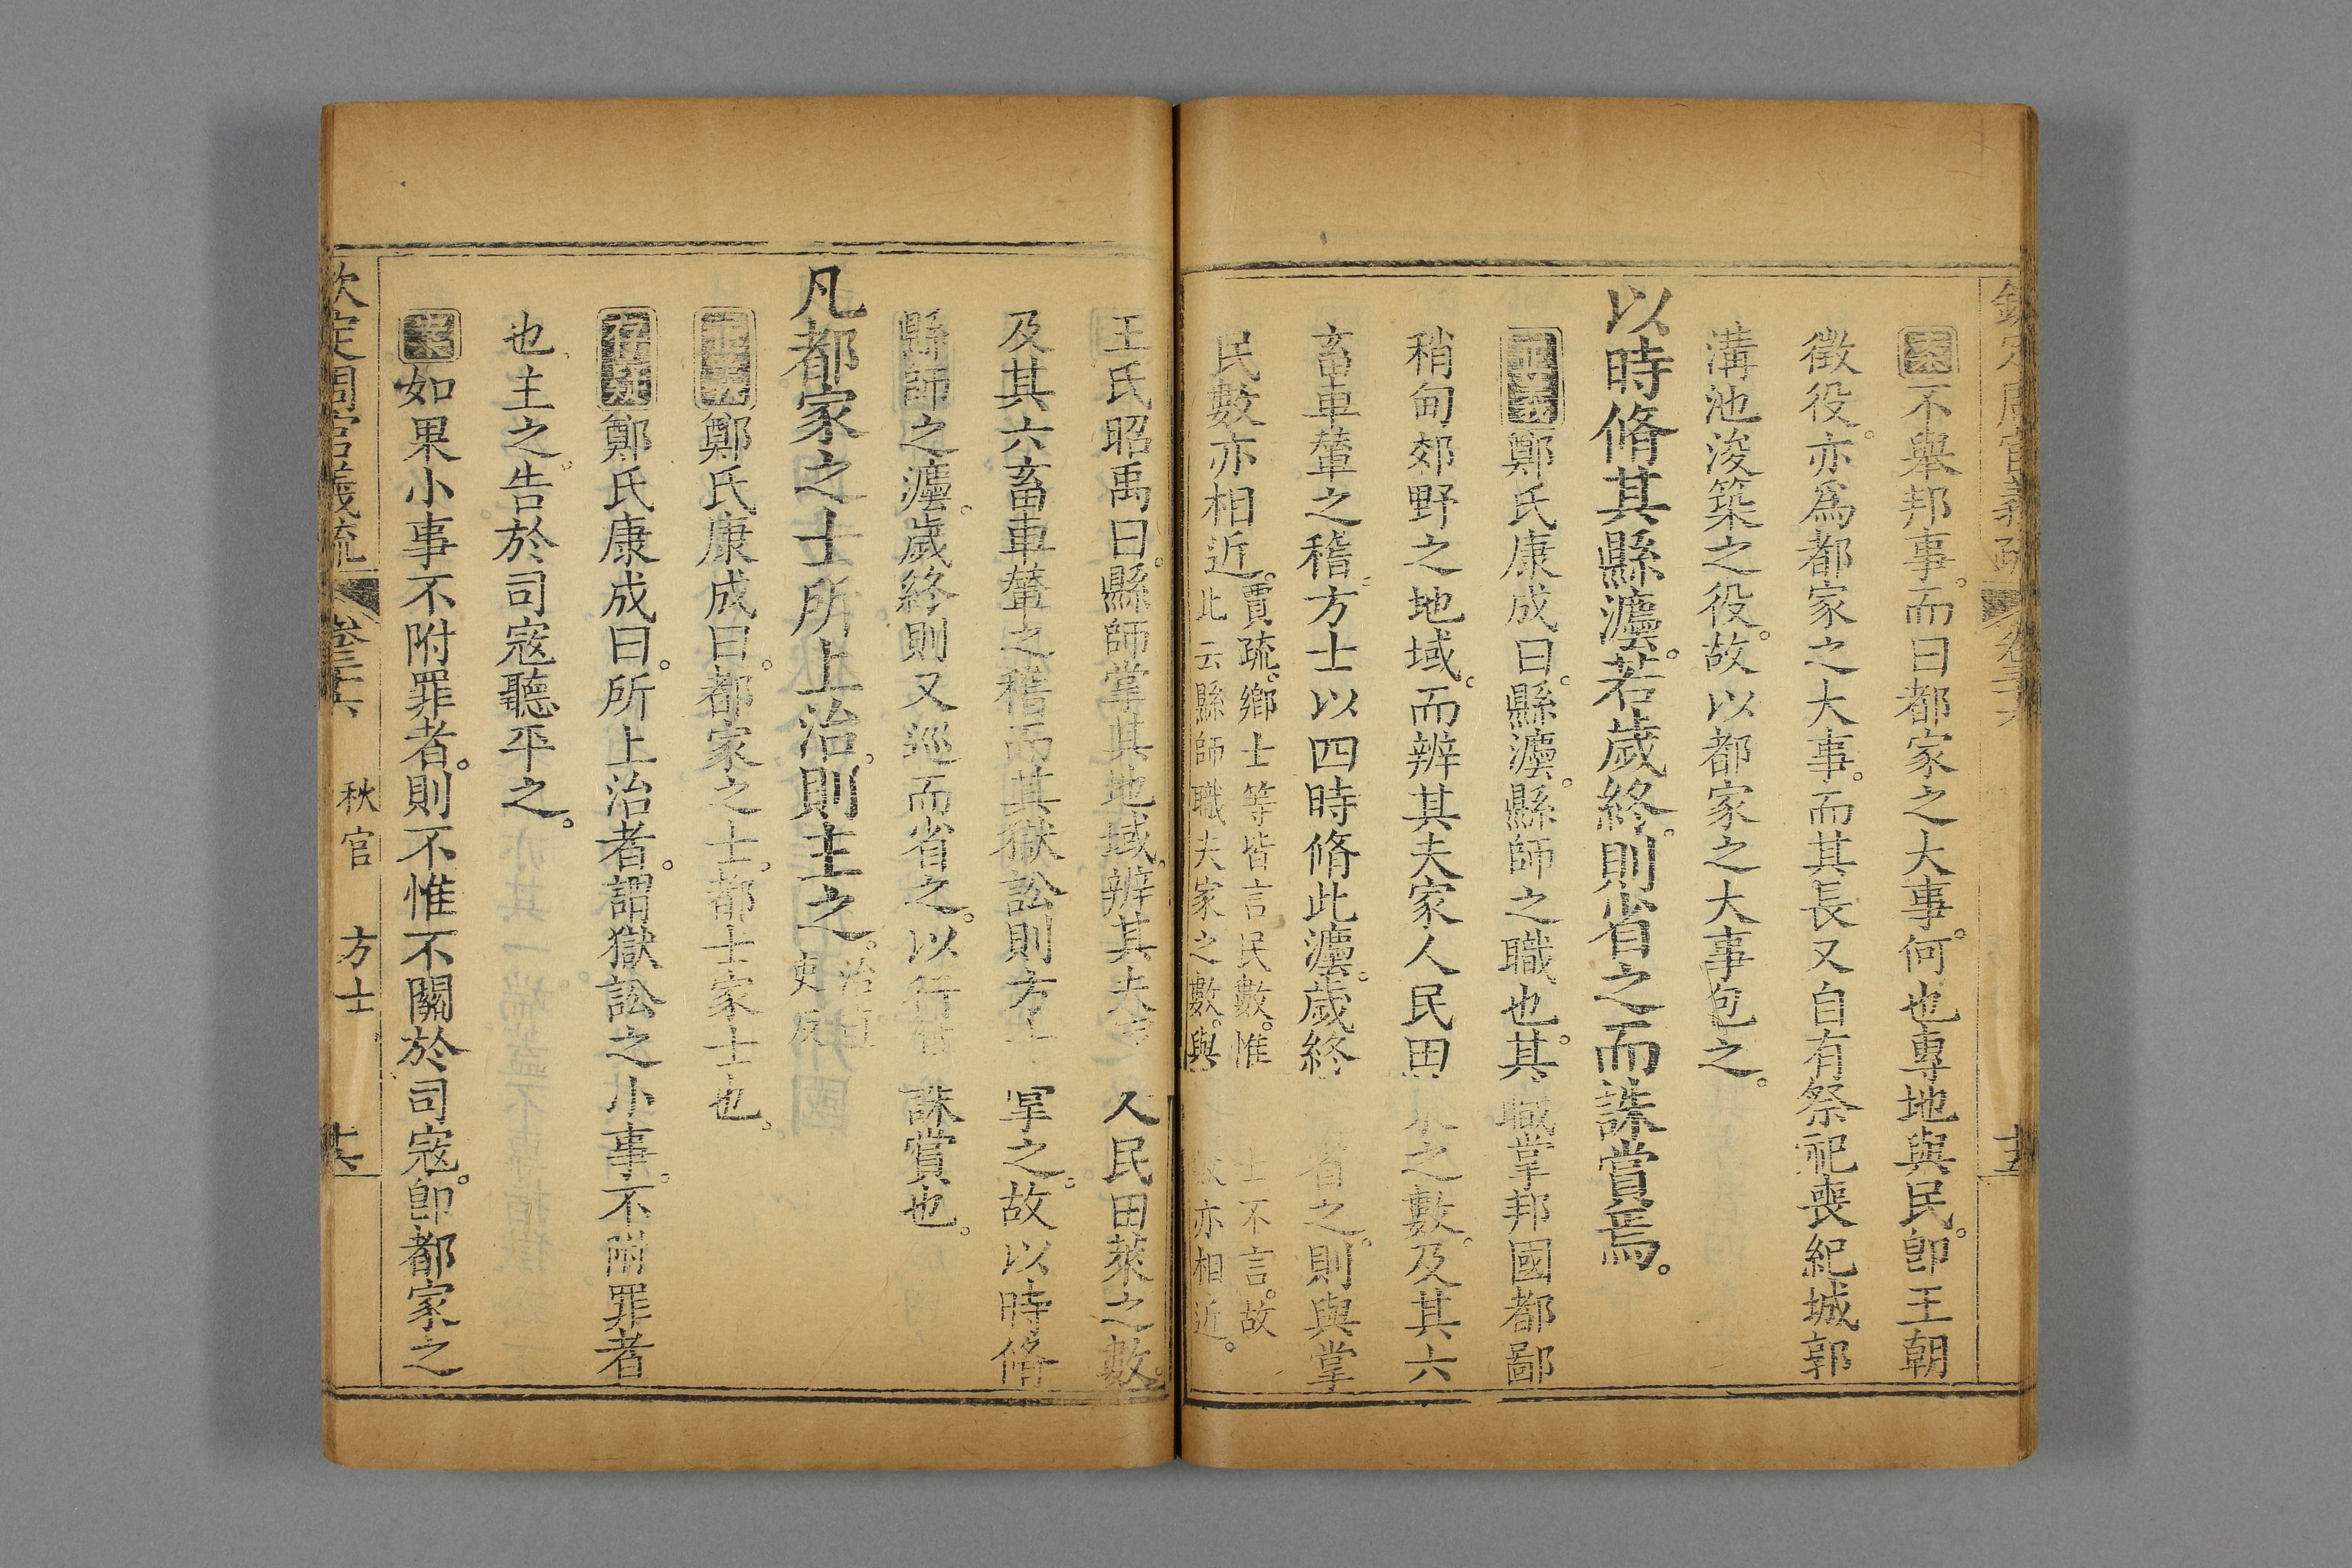 案不舉邦事。而曰都家之大事。何也專地與民。卽王朝
徵役。亦爲都家之大事。而其長又自有祭祀喪紀城郭
溝池浚築之役。故以都家之大事包之。
以時脩其縣灋。若歲終。則省之而誅賞焉。
正義鄭氏康成曰。縣灋。縣師之職也。其職掌邦國都鄙
稍甸郊野之地域。而辨其夫家人民田之數。及其六
畜車輦之稽。方士以四時脩此灋。歲終省之。則與掌
民數亦相近。賈疏。鄉士等皆言民數。惟士不言。故
此云縣師職夫家之數。與亦相近。
王氏昭禹曰。縣師掌其地域。辨其夫人民田萊之數。
及其六畜車輦之稽而其獄訟則方士掌之。故以時脩
縣師之灋。歲終則又巡而省之。以行誅賞也。
凡都家之士所上治。則主之。治直
吏反
正義鄭氏康成曰。都家之士。都士家士也。
鄭氏康成曰。所上治者。謂獄訟之小事。不附罪者
也主之。告於司寇聽平之。
案如果小事不附罪者。則不惟不關於司寇。卽都家之
欽定周官義疏 卷三十六 秋官 方士